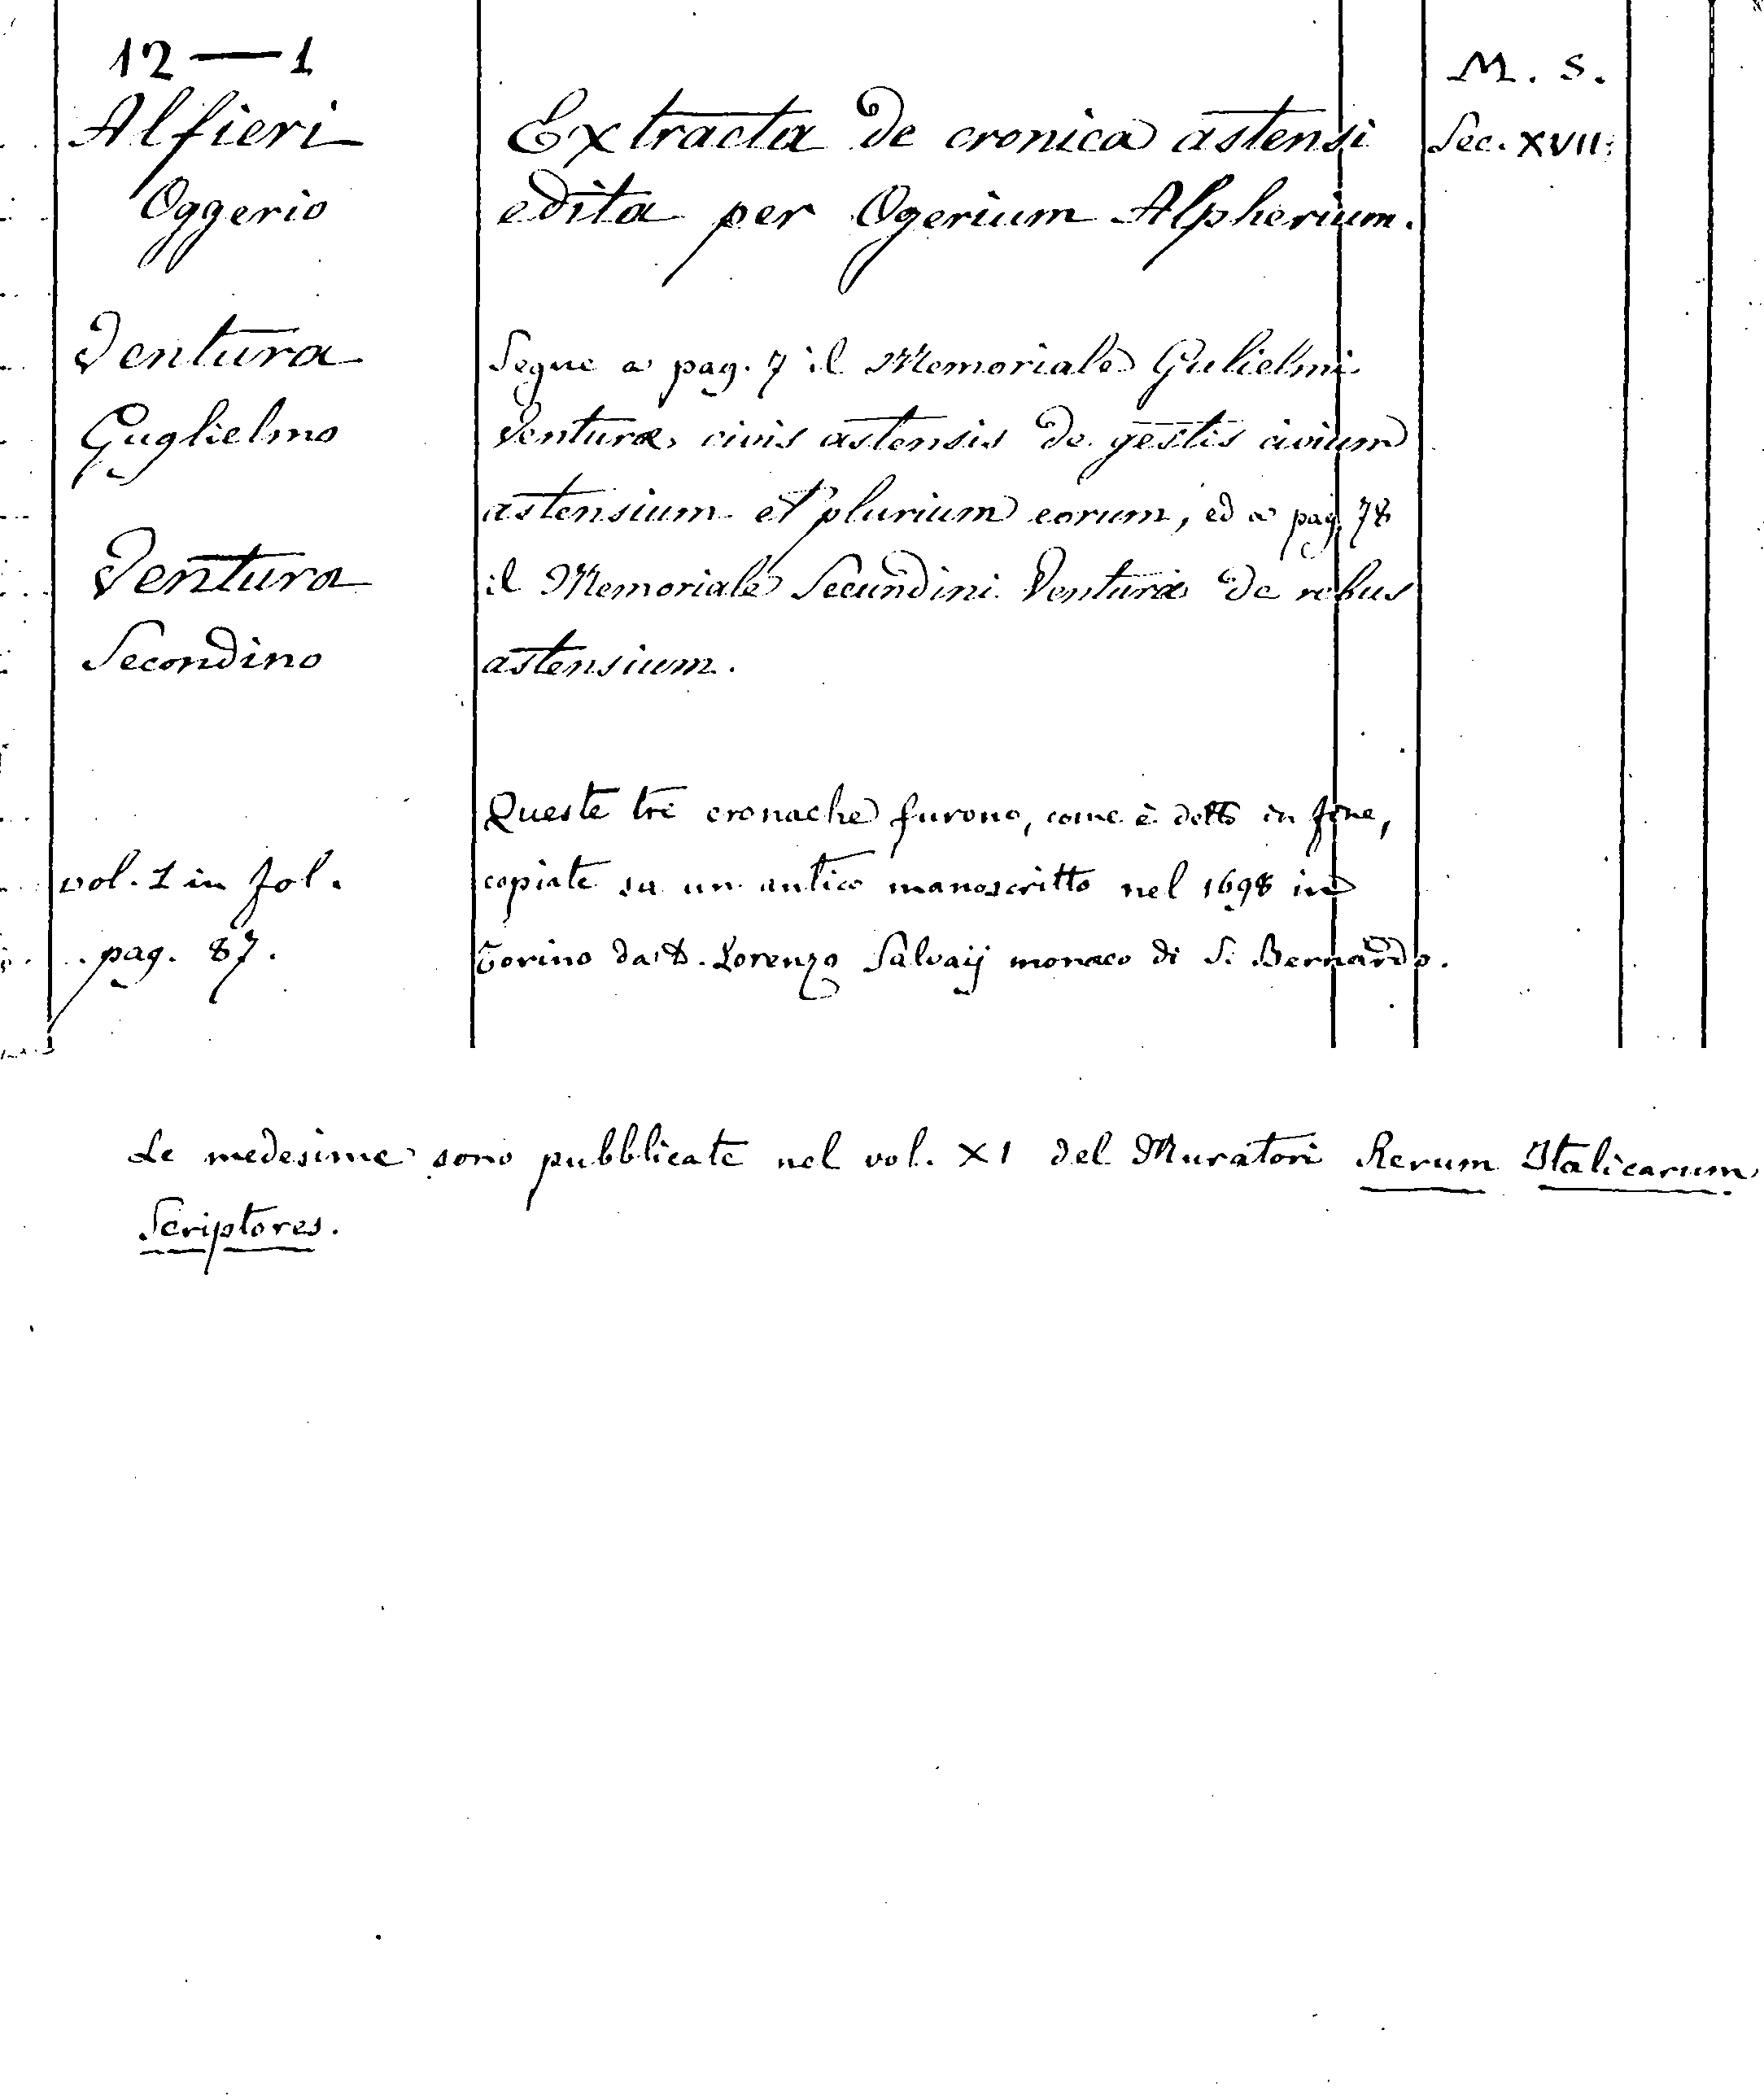 12 — 1
M. S.
Alfieri
Extracta de cronica astensi
Sec. XVII.
Oggerio
edita per Ogerium Alpherium.
Ventura
Segue a pag. 7 il Memoriale Gulielmi
Guglielmo
Venturæ, civis astensis de gestis civium
astensium et plurium eorum, ed a pag. 78
Ventura
il Memoriale Secundini Venturæ de rebus
Secondino
astensium.
Queste tre cronache furono, come è detto in fine,
vol. 1 in fol.
copiate su un antico manoscritto nel 1698 in
pag. 87.
Torino da D. Lorenzo Salvaij monaco di S. Bernardo.
Le medesime sono pubblicate nel vol. XI del Muratori Rerum Italicarum
Scriptores.